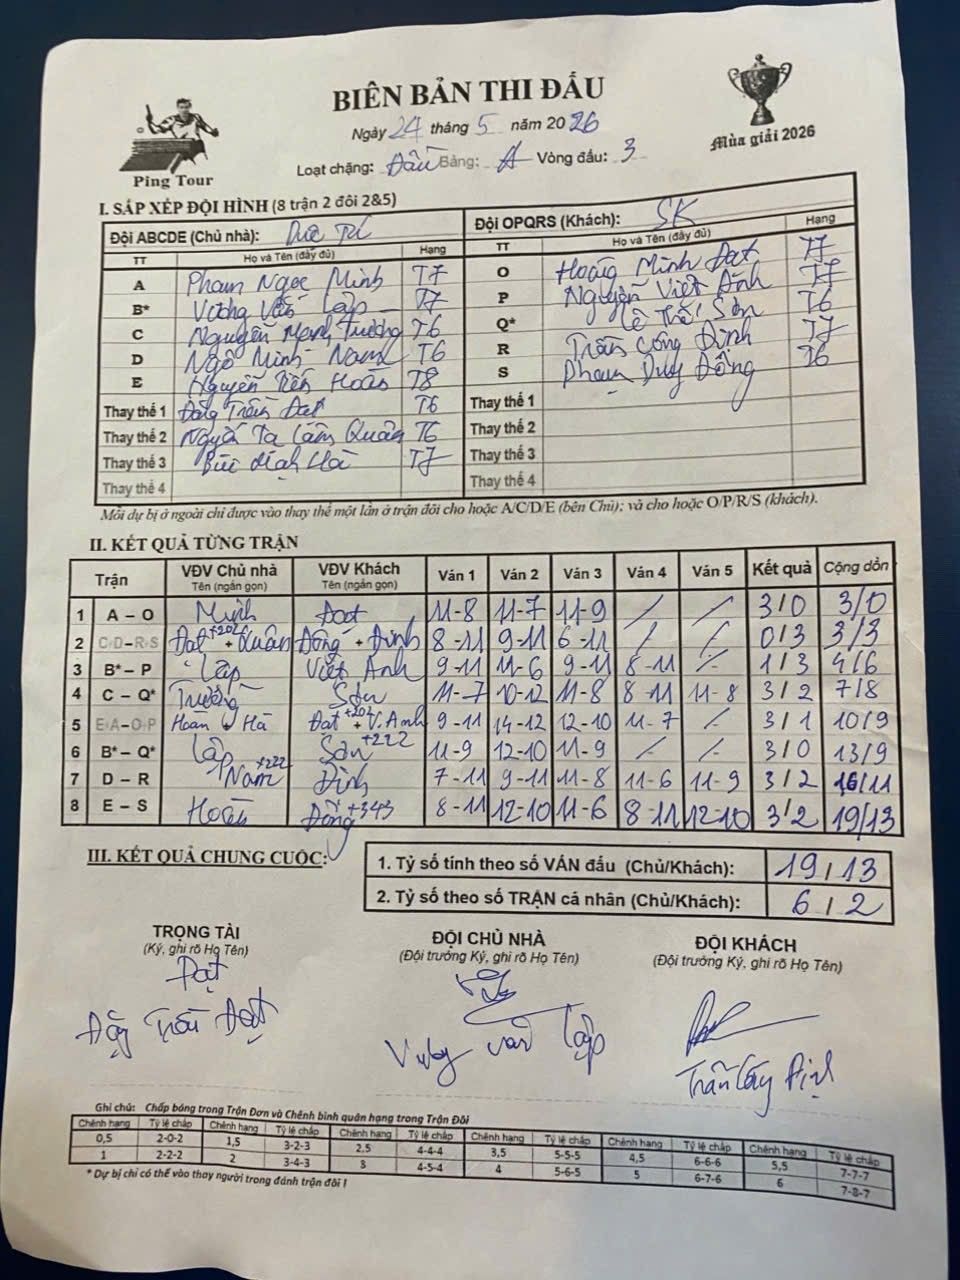 BIÊN BẢN THI ĐẤU
Ngày 24 tháng 5 năm 2026
Ping Tour
Mùa giải 2026
Loạt chặng: Đấu Bảng: A Vòng đấu: 3
I. SẮP XÉP ĐỘI HÌNH (8 trận 2 đôi 2&5)
Đội ABCDE (Chủ nhà): Đức Trí Đội OPQRS (Khách): SK
TT Họ và Tên (đầy đủ) Hạng TT Họ và Tên (đầy đủ) Hạng
A Phạm Ngọc Minh T7 O Hoàng Minh Đạt T7
B* Vương Văn Lập T7 P Nguyễn Việt Anh T7
C Nguyễn Mạnh Trường T6 Q* Lê Thái Sơn T6
D Ngô Minh Nam T6 R Trần Công Đỉnh T7
E Nguyễn Tiến Hoàn T8 S Phạm Duy Đông T6
Thay thế 1 Đặng Trần Đạt T6 Thay thế 1
Thay thế 2 Nguyễn Tạ Lâm Quân T6 Thay thế 2
Thay thế 3 Bùi Mạnh Hà T7 Thay thế 3
Thay thế 4 Thay thế 4
Mỗi dự bị ở ngoài chỉ được vào thay thế một lần ở trận đôi cho hoặc A/C/D/E (bên Chủ); và cho hoặc O/P/R/S (khách).
II. KẾT QUẢ TỪNG TRẬN
Trận VĐV Chủ nhà Tên (ngắn gọn) VĐV Khách Tên (ngắn gọn) Ván 1 Ván 2 Ván 3 Ván 4 Ván 5 Kết quả Cộng dồn
1 A – O Minh Đạt 11-8 11-7 11-9 / / 3/0 3/0
2 C-D–R-S Đạt +202 + Quân Đông + Đỉnh 8-11 9-11 6-11 / / 0/3 3/3
3 B* – P Lập Việt Anh 9-11 11-6 9-11 8-11 / 1/3 4/6
4 C – Q* Trường Sơn 11-7 10-12 11-8 8-11 11-8 3/2 7/8
5 E-A–O-P Hoàn + Hà Đạt +202 + V.Anh 9-11 14-12 12-10 11-7 / 3/1 10/9
6 B* – Q* Lập Sơn +222 11-9 12-10 11-9 / / 3/0 13/9
7 D – R Nam +222 Đỉnh 7-11 9-11 11-8 11-6 11-9 3/2 16/11
8 E – S Hoàn Đông +343 8-11 12-10 11-6 8-11 12-10 3/2 19/13
III. KẾT QUẢ CHUNG CUỘC:
1. Tỷ số tính theo số VÁN đấu (Chủ/Khách): 19/13
2. Tỷ số theo số TRẬN cá nhân (Chủ/Khách): 6/2
TRỌNG TÀI
(Ký, ghi rõ Họ Tên)
Đạt
Đặng Trần Đạt
ĐỘI CHỦ NHÀ
(Đội trưởng Ký, ghi rõ Họ Tên)
Vương Văn Lập
ĐỘI KHÁCH
(Đội trưởng Ký, ghi rõ Họ Tên)
Trần Công Đỉnh
Ghi chú: Chấp bóng trong Trận Đơn và Chênh bình quân hạng trong Trận Đôi
Chênh hạng Tỷ lệ chấp Chênh hạng Tỷ lệ chấp Chênh hạng Tỷ lệ chấp Chênh hạng Tỷ lệ chấp Chênh hạng Tỷ lệ chấp Chênh hạng Tỷ lệ chấp
0,5 2-0-2 1,5 3-2-3 2,5 4-4-4 3,5 5-5-5 4,5 6-6-6 5,5 7-7-7
1 2-2-2 2 3-4-3 3 4-5-4 4 5-6-5 5 6-7-6 6 7-8-7
* Dự bị chỉ có thể vào thay người trong đánh trận đôi !